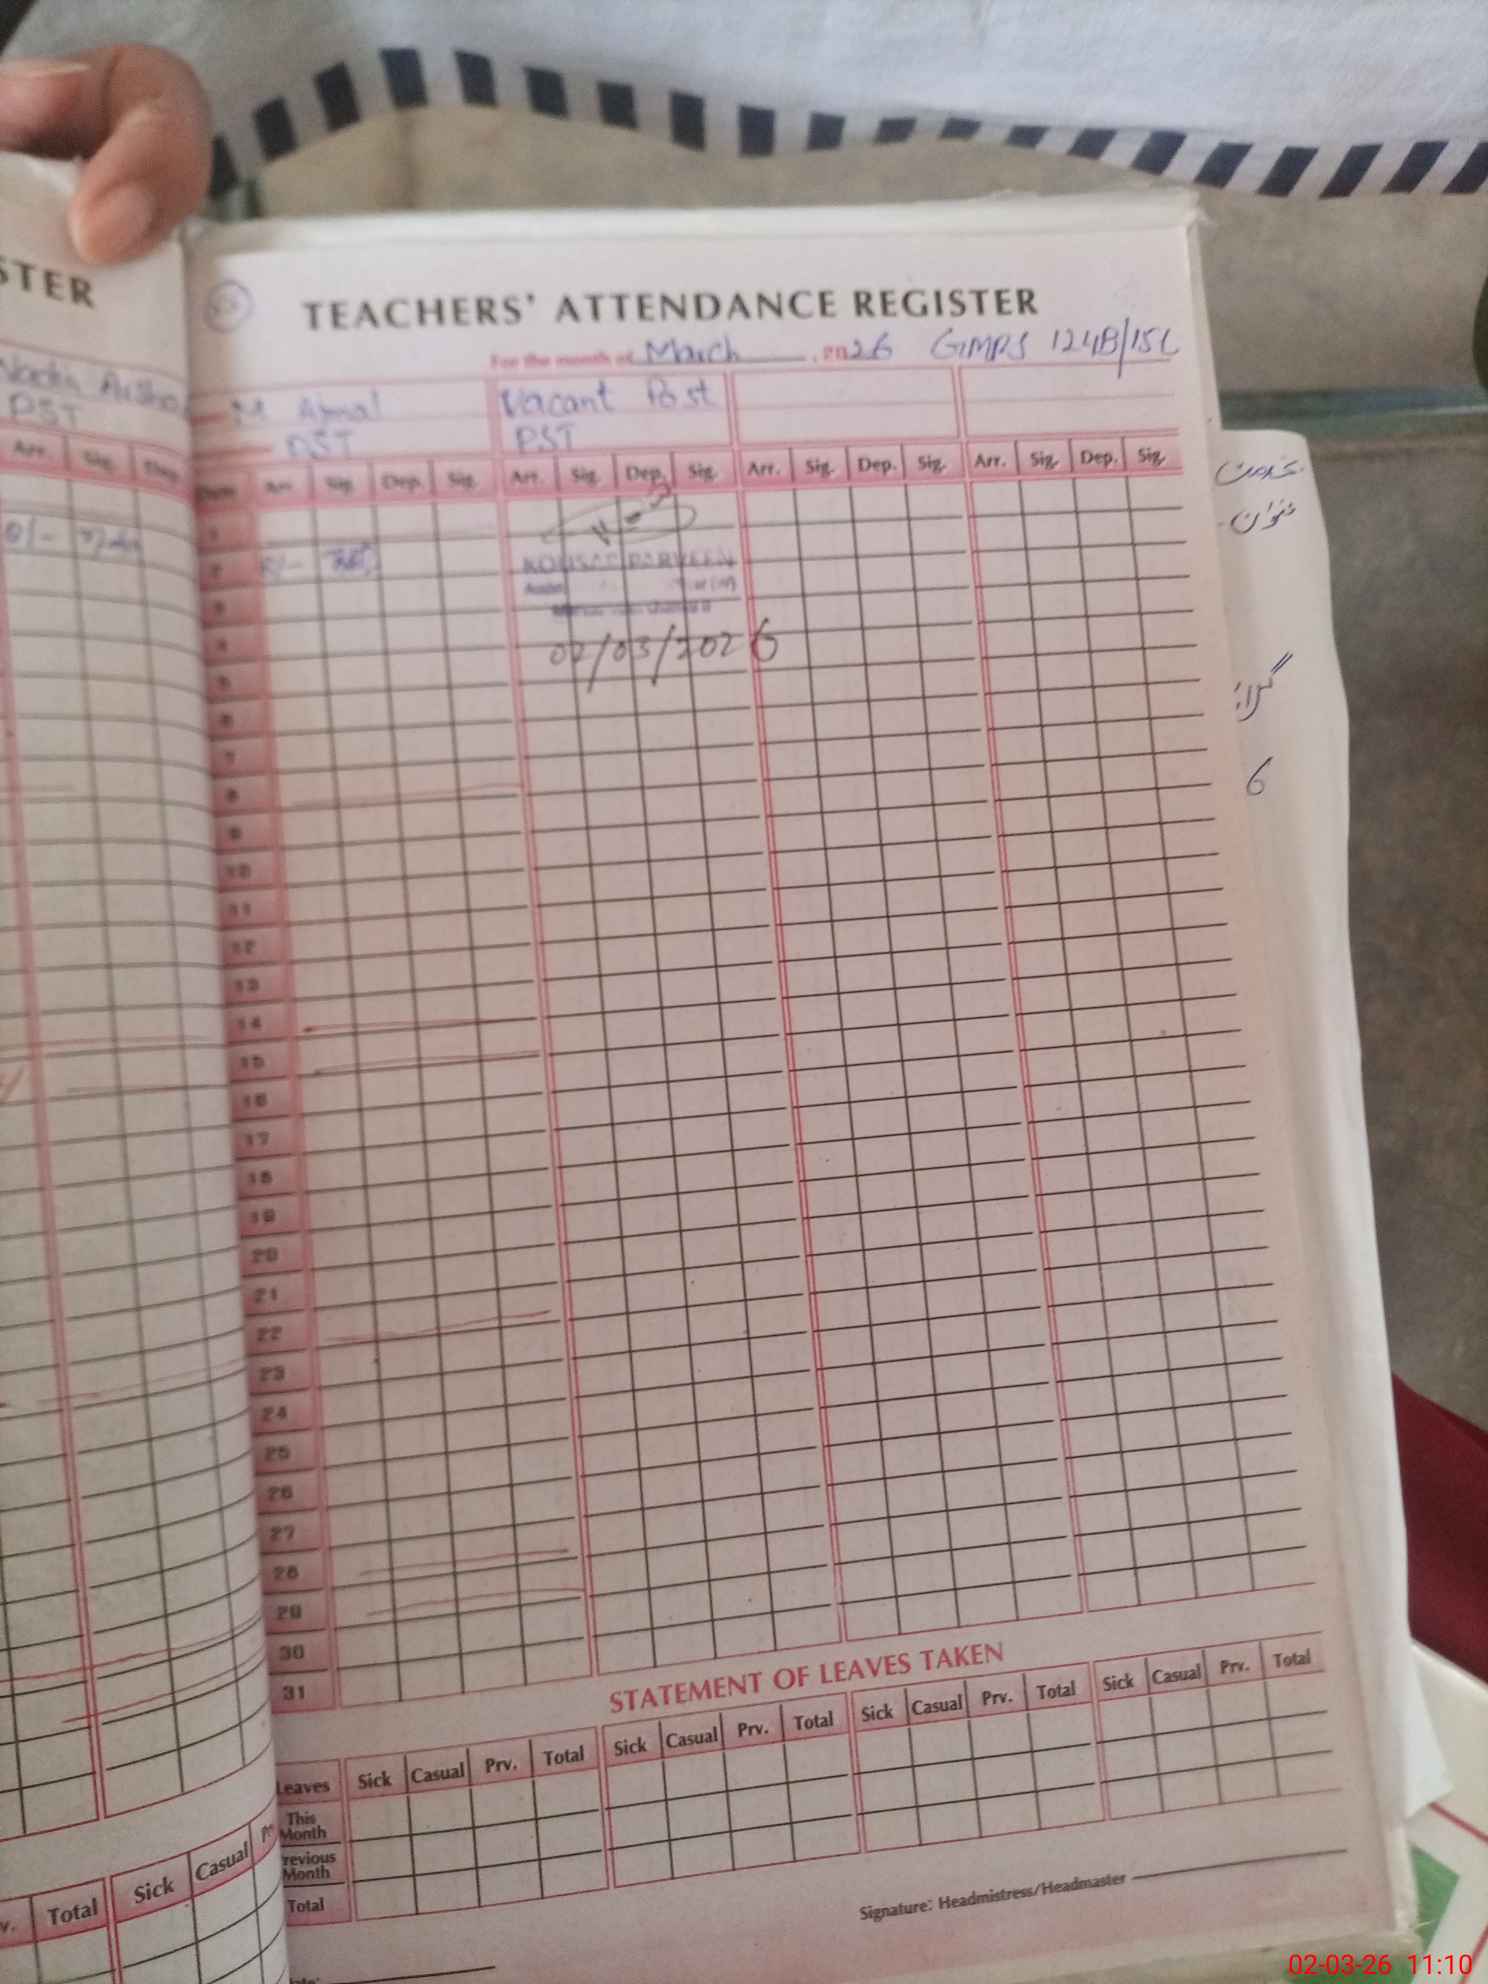 STER
PST
Arr. Sig. Dep.
TEACHERS' ATTENDANCE REGISTER
For the month of March , 2026 GMPS 124B/15L
M Ajmal
PST
Vacant Post
PST
Date Arr. Sig. Dep. Sig. Arr. Sig. Dep. Sig. Arr. Sig. Dep. Sig. Arr. Sig. Dep. Sig.
1
2
KOUSAR PARVEEN
3
4
02/03/2026
5
6
7
8
9
10
11
12
13
14
15
16
17
18
19
20
21
22
23
24
25
26
27
28
29
30
31
6
STATEMENT OF LEAVES TAKEN
Leaves Sick Casual Prv. Total Sick Casual Prv. Total Sick Casual Prv. Total Sick Casual Prv. Total
This Month
Previous Month
Total
Total Sick Casual
Signature: Headmistress/Headmaster
02-03-26 11:10